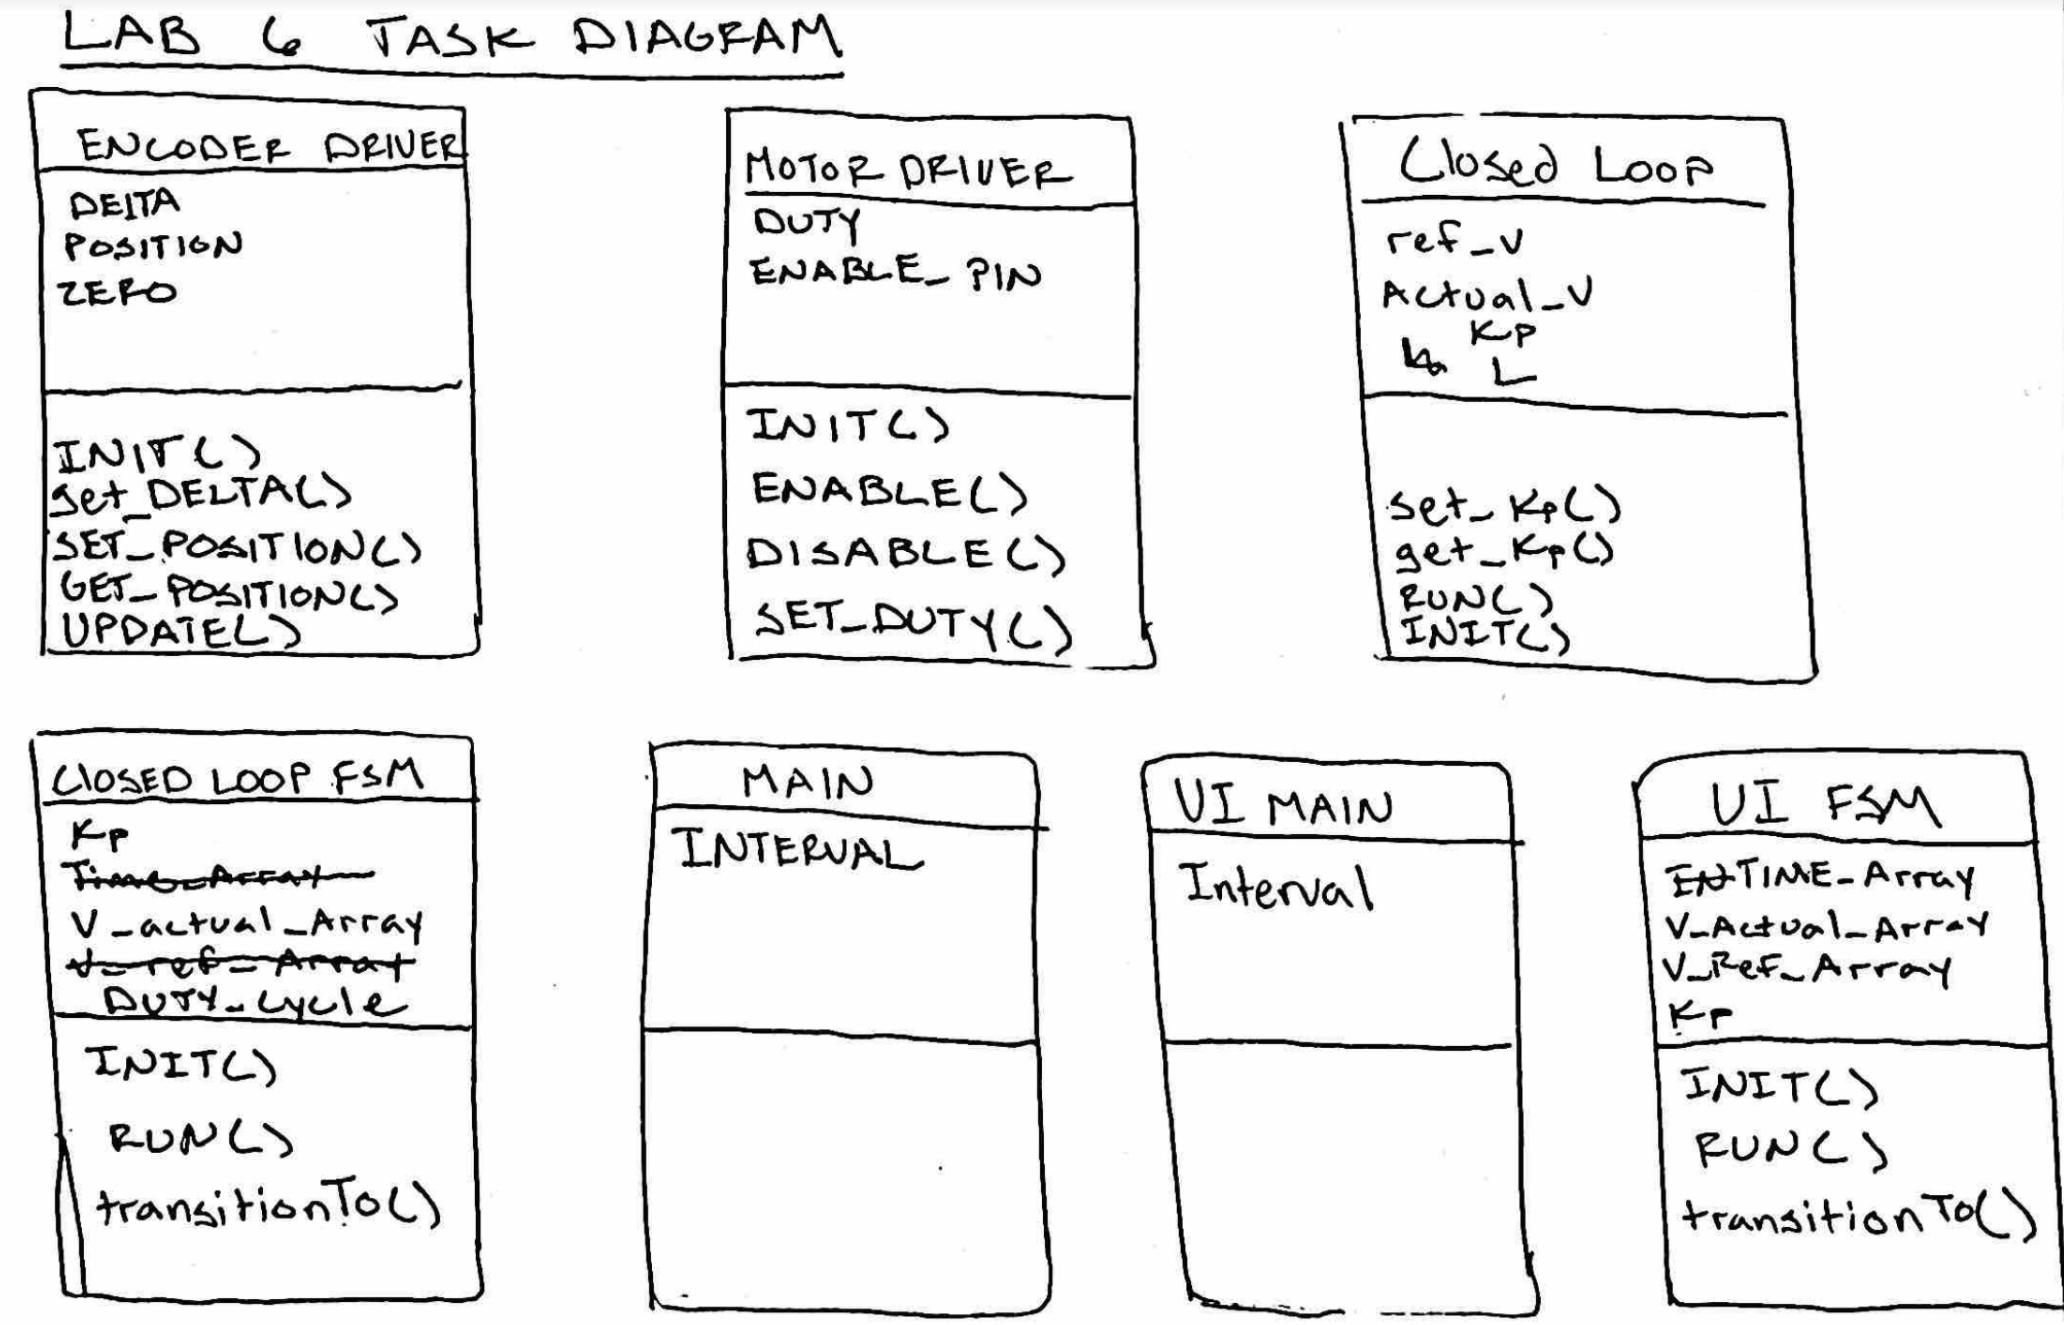 LAB 6 TASK DIAGRAM
ENCODER DRIVER
DELTA
POSITION
ZERO
INIT()
set_DELTA()
SET_POSITION()
GET_POSITION()
UPDATE()
MOTOR DRIVER
DUTY
ENABLE_PIN
INIT()
ENABLE()
DISABLE()
SET_DUTY()
Closed Loop
ref_v
Actual_v
Kp
L
set_Kp()
get_Kp()
RUN()
INIT()
ClOSED LOOP FSM
Kp
Time_Array
V_actual_Array
V_ref_Array
DUTY_cycle
INIT()
RUN()
transitionTo()
MAIN
INTERVAL
UI MAIN
Interval
UI FSM
TIME_Array
V_Actual_Array
V_Ref_Array
Kp
INIT()
RUN()
transitionTo()